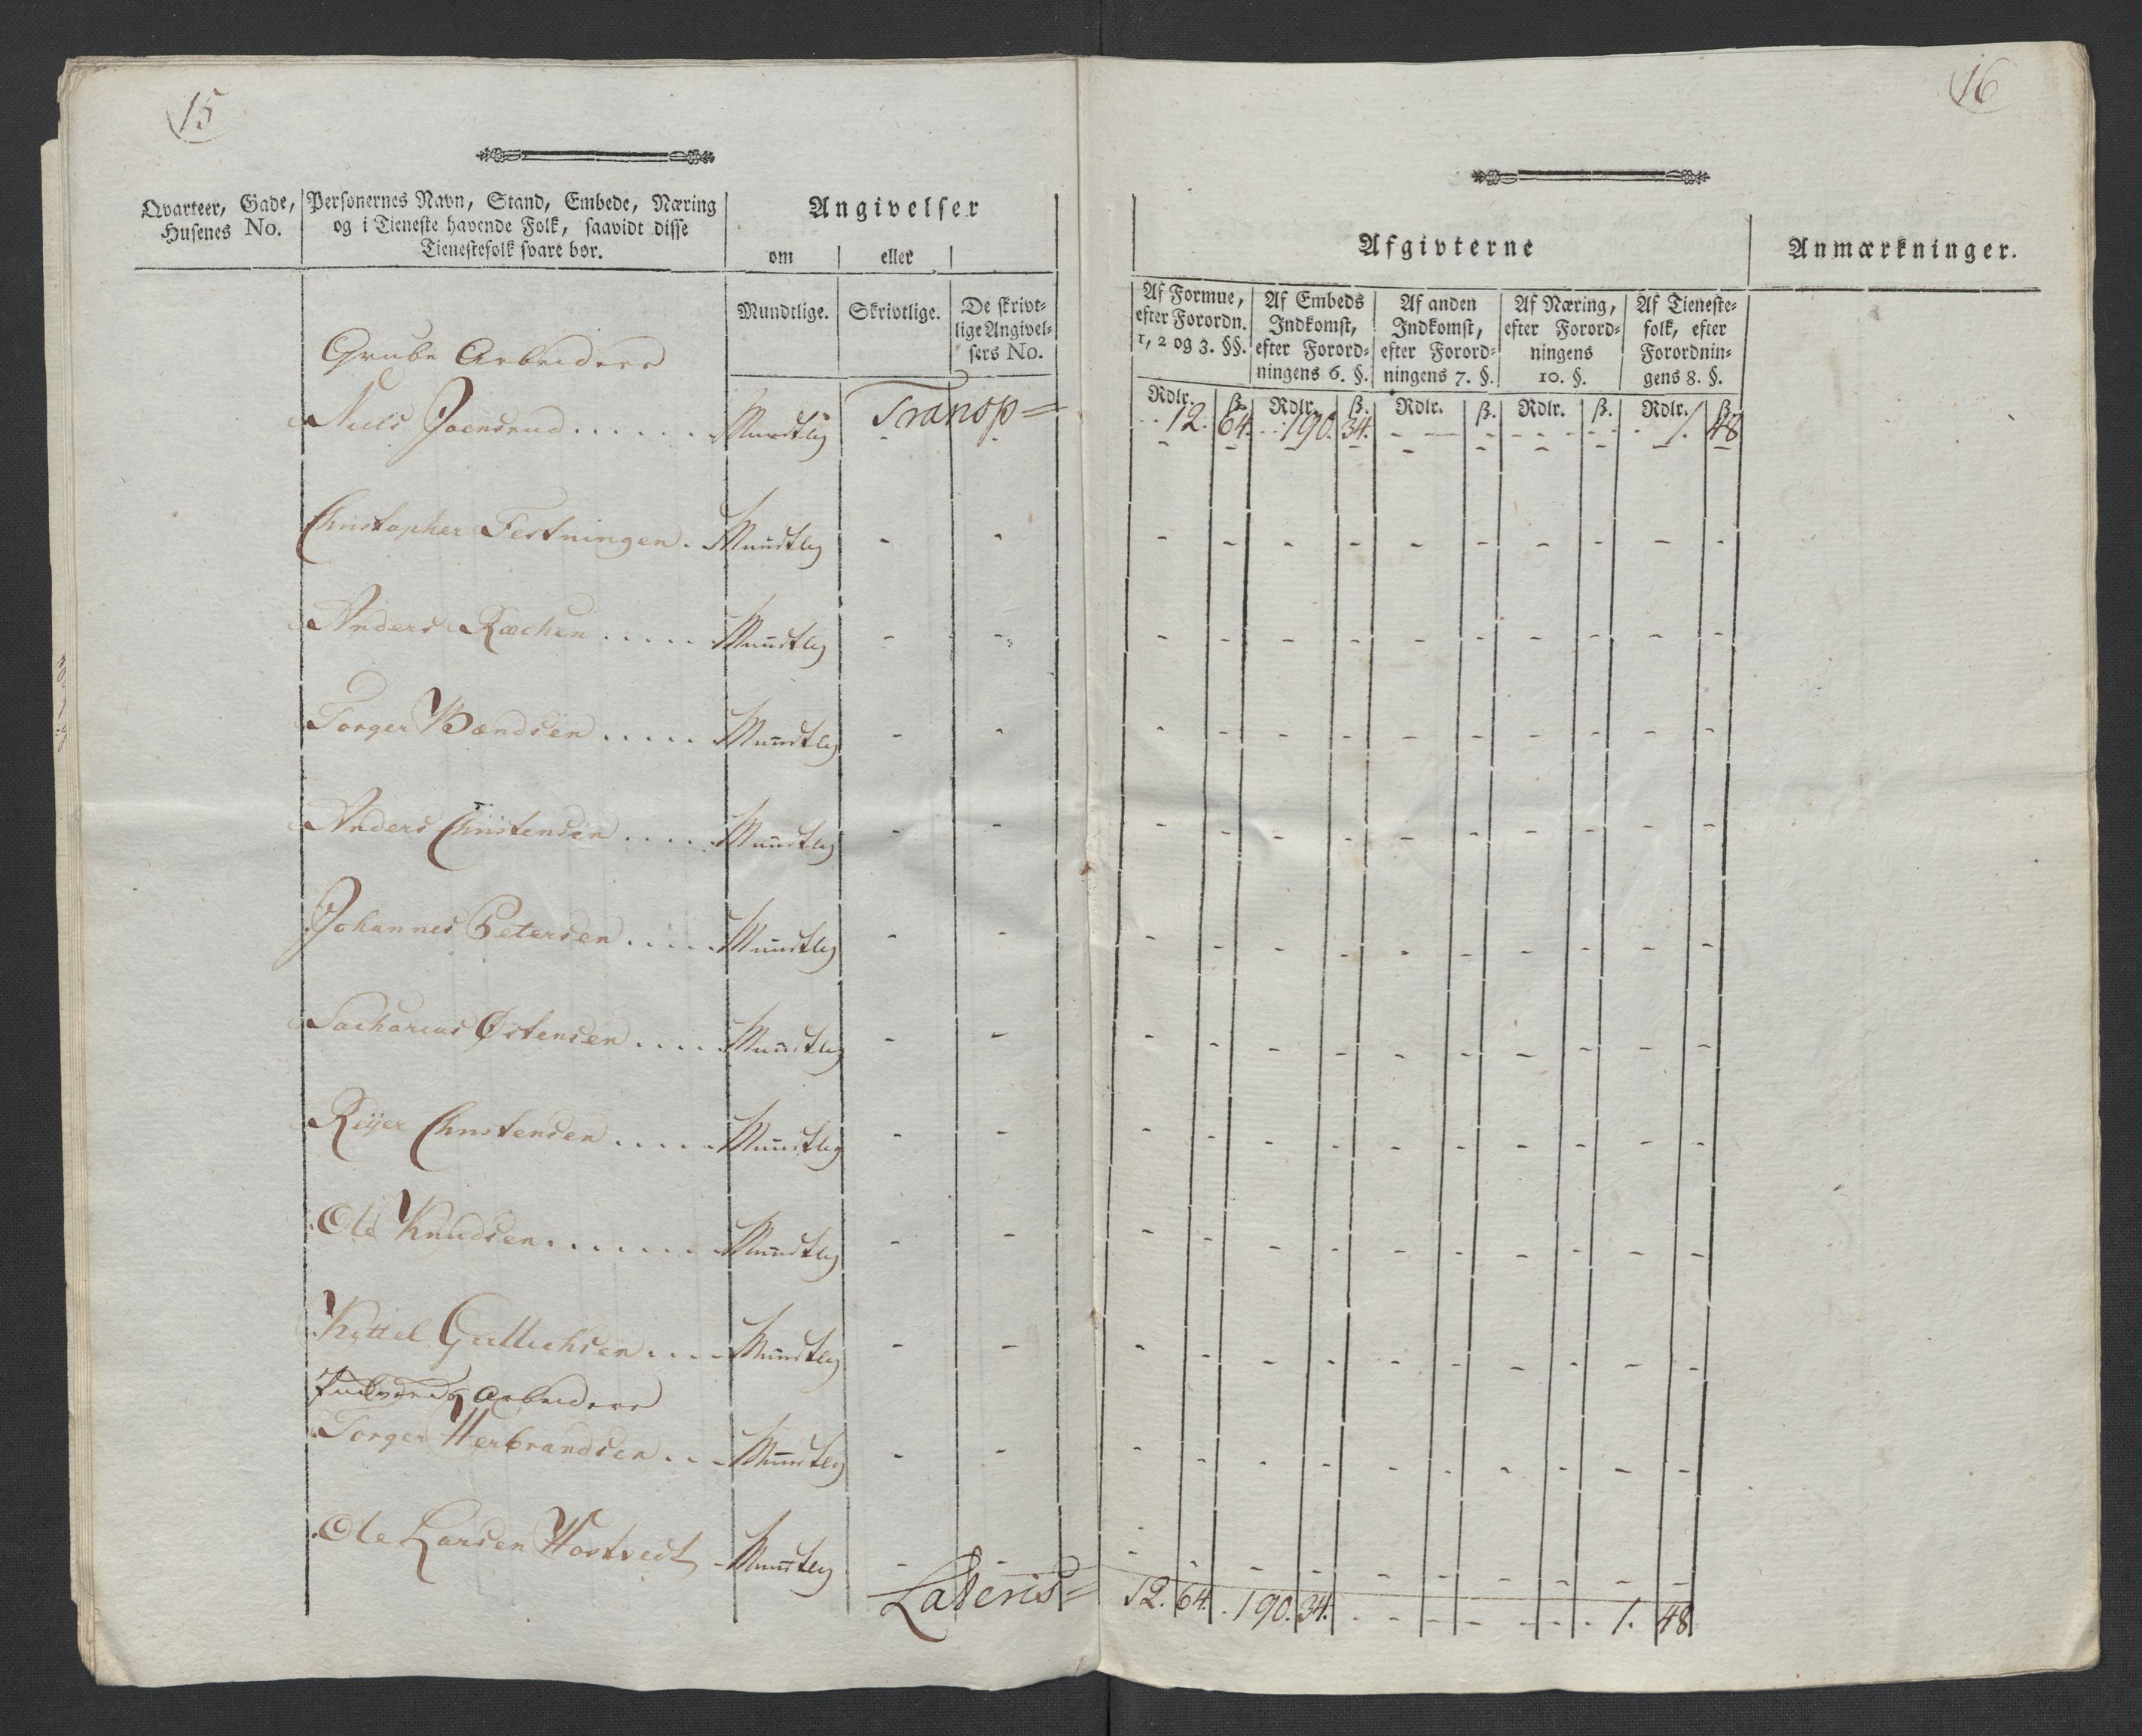 15
Qvarteer, Gade,
Husenes No.
Personernes Navn, Stand, Embede, Næring
og i Tieneste havende Folk, saavidt disse
Tienestefolk svare bør.
Angivelser
om eller
Mundtlige. Skrivtlige. De skrivt-
lige Angivel-
sers No.
Grube Arbeidere
Niels Joensrud . . . . . . Mundtlig Transp=
Christopher Festningen . Mundtlig - -
Anders Rachen . . . . . Mundtlig - -
Torger Wændsen . . . . . Mundtlig - -
Anders Christensen . . . . . Mundtlig - -
Johannes Petersen . . . . . Mundtlig - -
Sacharias Østensen . . . . Mundtlig - -
Reijer Christensen . . . . . Mundtlig - -
Ole Knudsen . . . . . . . Mundtlig - -
Kittel Gullichsen . . . . Mundtlig - -
Arbeidere
Torger Herbrandsen . . . Mundtlig - -
Ole Larsen Hostvedt - Mundtlig - -
Lateris=
16
Afgivterne
Anmærkninger.
Af Formue,
efter Forordn.
1, 2 og 3. §§.
Af Embeds
Indkomst,
efter Forord-
ningens 6. §.
Af anden
Indkomst,
efter Forord-
ningens 7. §.
Af Næring,
efter Forord-
ningens
10. §.
Af Tieneste-
folk, efter
Forordnin-
gens 8. §.
Rdlr. ß. Rdlr. ß. Rdlr. ß. Rdlr. ß. Rdlr. ß.
12. 64. 190. 34. - - - - 1. 48
12. 64. 190. 34. - - - - 1. 48